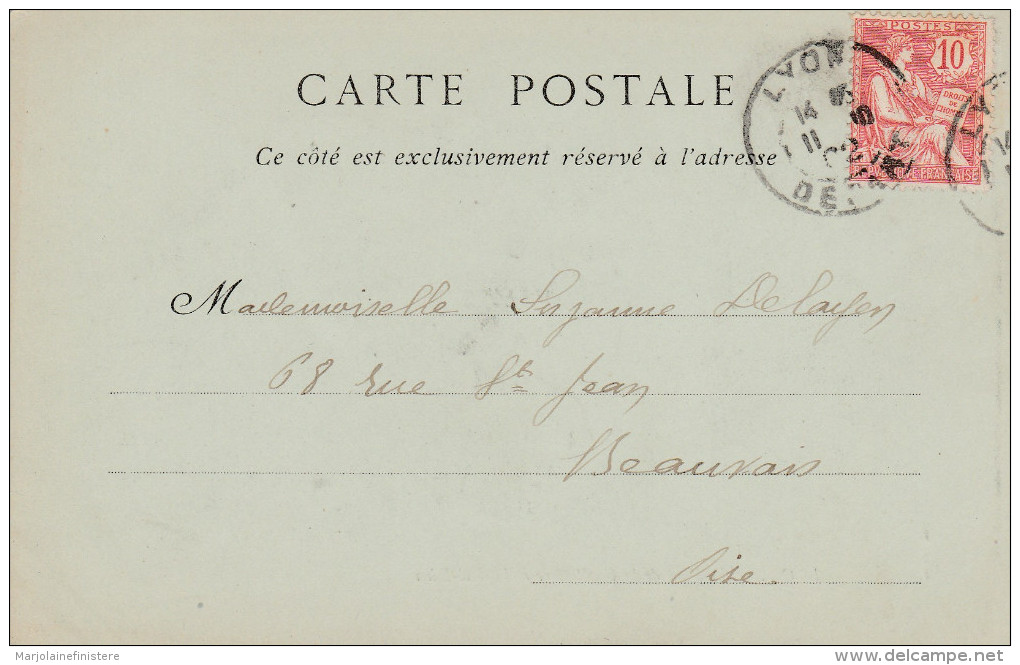 CARTE POSTALE
Ce côté est exclusivement réservé à l'adresse
POSTES
10
DROITS
DE
L'HOMME
REPUBLIQUE FRANÇAISE
LYON
14
11
02
Mademoiselle Suzanne Delayen
68 rue St Jean
Beauvais
Oise.
Marjolainefinistere
delcampe.net